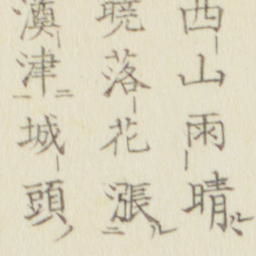 西山雨晴
暁落花漲
漢津城頭